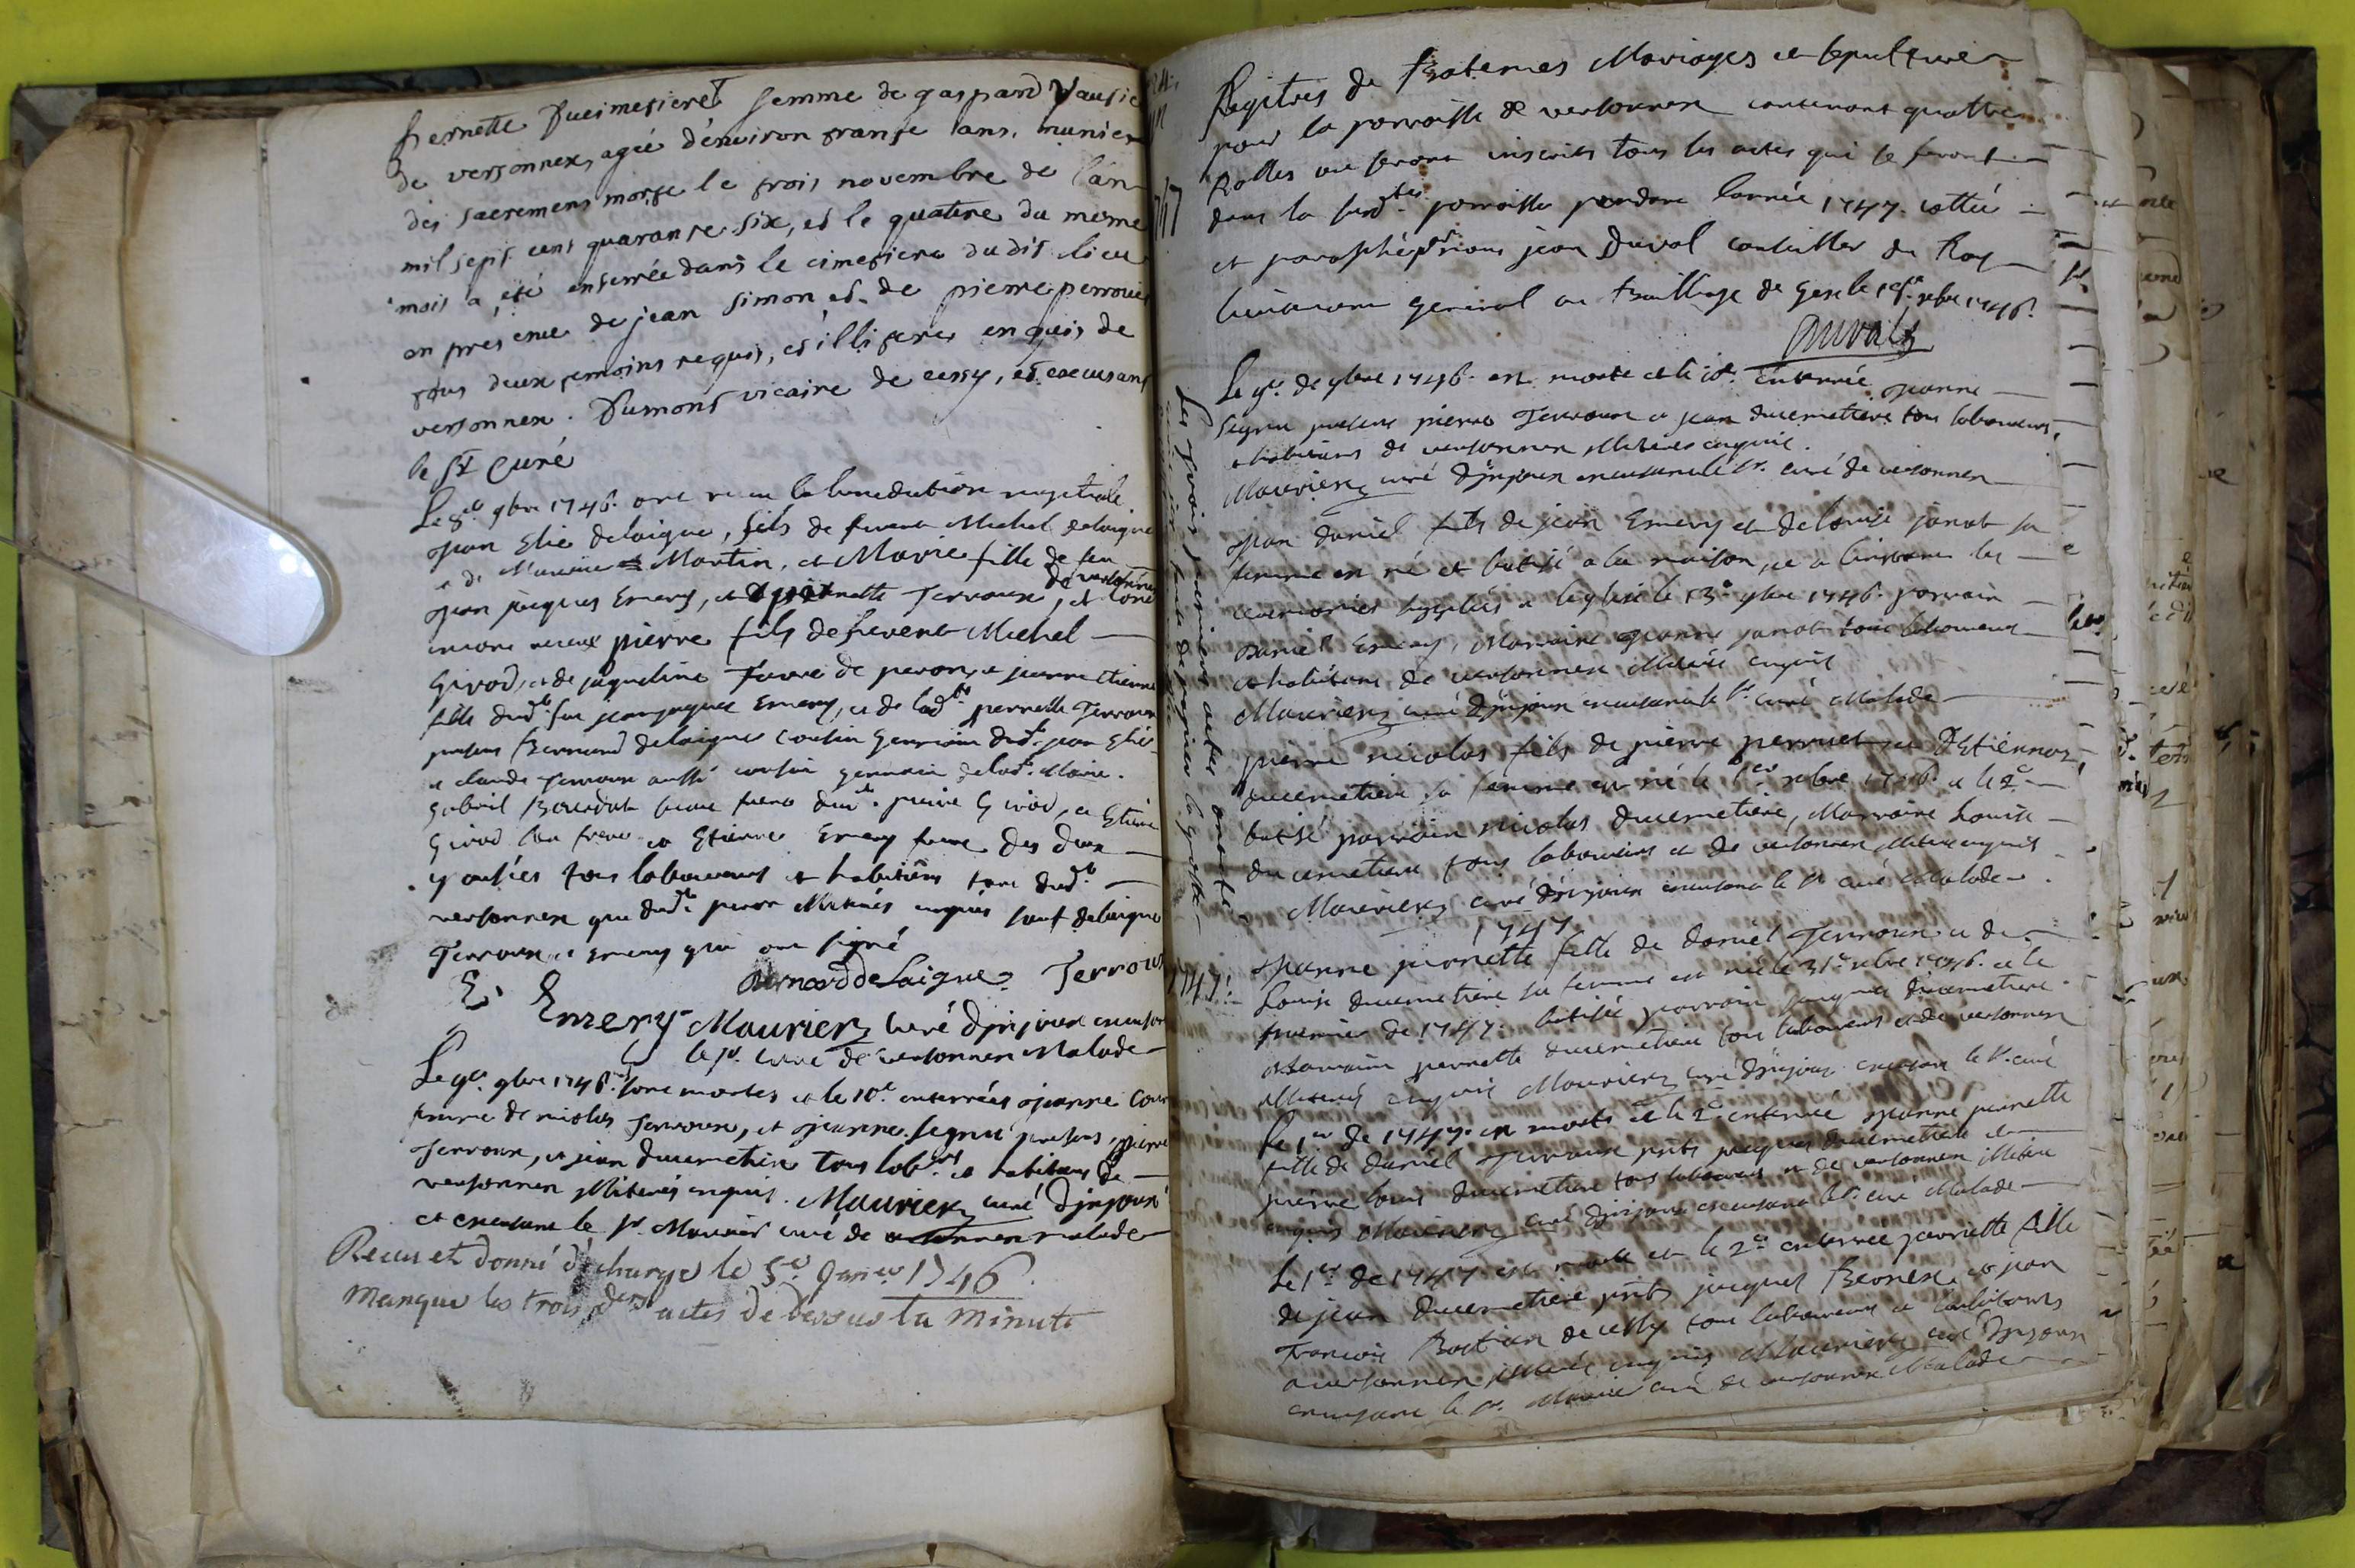 Pernette Ducimetieret femme de gaspard Vautie
de versonnex, agée d'environ trante ans, munier
des sacremens morte le trois novembre de l'an
mil sept cent quarante six, et le quatre du meme
mois a été enterrée dans le cimetiere du dit lieu
en présence de jean Simon et de pierre perrouet
tous deux temoins requis, et illiteres enquis de
versonnex. Dumont vicaire de cessy, et excusant
le Sr Curé
Le 8e 9bre 1746 ont recu la benediction nuptiale
jean Elie delaigue, fils de Michel delaigue
Martin, et Marie fille de feu
jean jacques Emery, et pernette Terroux, de versonnex et
encore pierre fils de Michel
Girod, et de jaqueline favre de peron, et jeanne etienne
fille dudt feu jeanjaques Emery, et de ladte pernette Terroux
presens Bernard delaigue cousin germain dudt jean Elie
et claude Terroux aussi cousin germain deladte Marie.
Gabriel Bourdat beau frere dudt pierre Girod, et Etienne
Girod son frere et Etienne Emery frere des deux
epousées tous laboureurs et habitans tant dudt
versonnex que dudt peron illiterés enquis sauf delaigue
Terroux et Emery qui ont signé
Bernard de Laigue Terroux
E. Emery Maurier curé d'injoux excusant
le sr curé de versonnex Malade
Le 9e 9bre 1746 sont mortes et le 10e enterrées jeanne
femme de nicolas Terroux, et jeanne Segnu presens pierre
Terroux, et jean ducimetiere tous labrs et habitans de
versonnex illiterés enquis. Maurier curé d'injoux
et excusant le sr Maurier curé de versonnex malade
Recus et donné décharge le 5e janer 1746
manque les trois ders actes de dessus la minute
Les trois premiers actes ont été
Registres de Batemes Mariages et sepultures
pour la parroisse de versonnex contenant quattre
Rolles ou seront inscrits tous les actes qui se feront
dans la susdte parroisse pendant l'année 1747. cotté
et paraphé par nous jean Duval conseiller du Roy
lieutenant general au Bailliage de Gex le xbre 1746.
Duval
Le 9e de 9bre 1746 est morte et le 10e enterrée jeanne
Segnu presens pierre Terroux et jean ducimetiere tous laboureurs,
et habitans de versonnex illiterés enquis.
Maurier curé d'injoux excusant le sr curé de versonnex
jean daniel fils de jean Emery et de louise janot sa
femme est né et batisé a la maison, et a les
ceremonies suppléés a leglise le 13e 9bre 1746 parrain
daniel Emery, Marraine jeanne janot tous laboureurs
et habitans de versonnex illiterés enquis
Maurier curé d'injoux excusant le sr curé Malade
pierre nicolas fils de pierre perrouet et d'Etiennaz
ducimetiere sa femme est né le 1er xbre 1746 et le 2e
batisé parrain nicolas ducimetiere, Marraine Louise
ducimetiere tous laboureurs et de versonnex illiteré enquis
Maurier curé d'injoux excusant le sr curé Malade
1747
jeanne pernette fille de daniel Terroux et de
Louise ducimetiere sa femme est née le 31e xbre 1746 et le
premier de 1747 batisée parrain jacques ducimetiere
Marraine pernette ducimetiere tous laboureurs et de versonnex
illiterés enquis Maurier curé d'injoux excusant le sr curé
Le 1er de 1747 est morte et le 2e enterrée jeanne pernette
fille de daniel Terroux pnts jacques ducimetiere et
pierre louis ducimetiere tous laboureurs et de versonnex illiteré
enquis Maurier curé d'injoux excusant le sr curé Malade
Le 1er de 1747 est morte et le 2e enterrée pernette fille
de jean ducimetiere pnts jacques et jean
francois Bastian de cessy tous laboureurs et habitants
a versonnex illiteré enquis Maurier curé d'injoux
excusant le sr Maurier curé de versonnex Malade